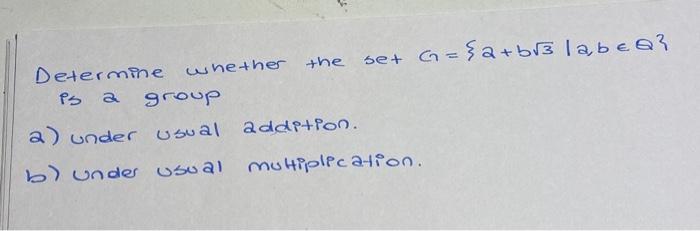 Determine whether the set G = {a+b√3 | a,b ∈ Q}
is a group
a) under usual addition.
b) under usual multiplication.